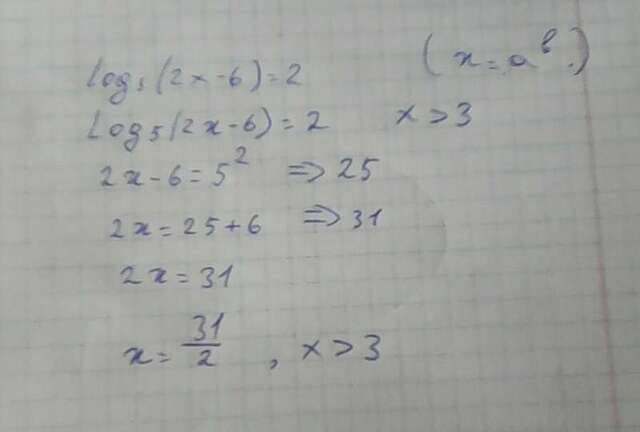 log₅(2x-6)=2 (x=aᵇ.)
Log₅(2x-6)=2 x>3
2x-6=5² => 25
2x=25+6 => 31
2x=31
x=31/2, x>3